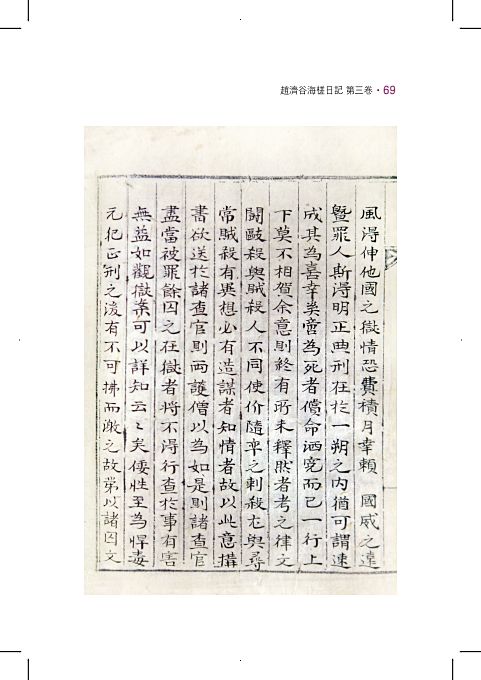 趙濟谷海槎日記 第三卷 • 69
風淂伸他國之獄情恐費積月幸賴 國威之遠
曁罪人斯淂明正典刑在於一朔之內猶可謂速
成其為嘉幸奚啻為死者償命洒寃而已一行上
下莫不相賀余意則終有所未釋然者考之律文
鬪毆殺與賊殺人不同使价隨率之刺殺尤與尋
常賊殺有異想必有造謀者知情者故以此意搆
書欲送於諸查官則兩護僧以為如是則諸查官
盡當被罪餘囚之在獄者將不淂行查於事有害
無益如觀獄案可以詳知云云矣倭性至為悍毒
元犯正刑之後有不可拂而激之故第以諸囚文